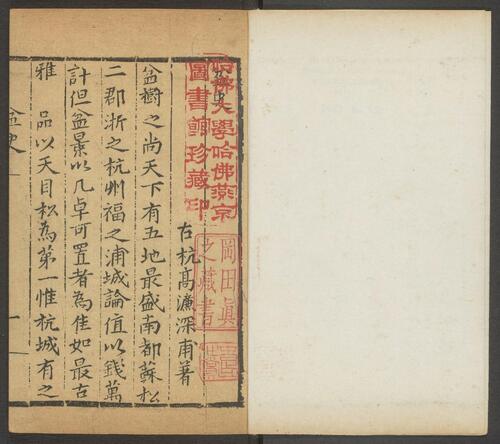 盆史
古杭高濂深甫著
盆樹之尚天下有五地最盛南都蘇松
二郡浙之杭州福之浦城論值以錢萬
計但盆景以几卓可置者為佳如最古
雅 品以天目松為第一惟杭城有之
盆史
一
哈佛大學哈佛燕京
圖書館珍藏印
岡田眞
之藏書